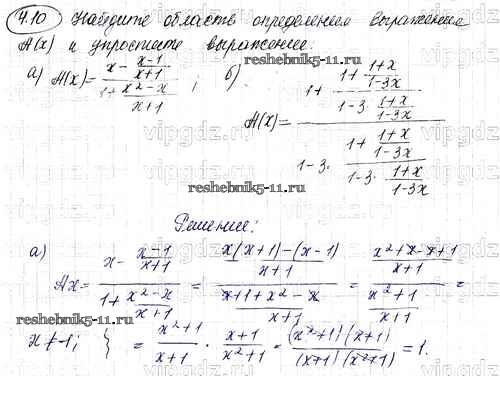 4.10 Найдите область определения выражения
A(x) и упростите выражение:
а) A(x) = (x - (x-1)/(x+1)) / (1 + (x²-x)/(x+1)) ; б) A(x) = (1 + (1 + (1+x)/(1-3x)) / (1-3·(1+x)/(1-3x))) / (1-3· (1 + (1+x)/(1-3x)) / (1-3·(1+x)/(1-3x)))
reshebnik5-11.ru
reshebnik5-11.ru
Решение:
а) Ax = (x - (x-1)/(x+1)) / (1 + (x²-x)/(x+1)) = ((x(x+1)-(x-1))/(x+1)) / ((x+1+x²-x)/(x+1)) = ((x²+x-x+1)/(x+1)) / ((x²+1)/(x+1)) =
reshebnik5-11.ru
x ≠ -1; } = (x²+1)/(x+1) · (x+1)/(x²+1) = ((x²+1)(x+1))/((x+1)(x²+1)) = 1.
reshebnik5-11.ru